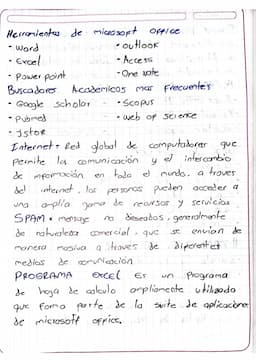 Herramientas de microsopt office
- Word - outlook
- Excel - Access
- Power point - One note
Buscadores Academicos mas frecuentes
- Google scholar - Scopus
- Pubmed - web of science
- Jstor
Internet = Red global de computadores que
permite la comunicación y el intercambio
de información en todo el mundo. a traves
del internet, las personas pueden acceder a
una amplia gama de recursos y servicios
SPAM = mensaje no deseados, generalmente
de naturaleza comercial, que se envian de
manera masiva a traves de diferentes
medios de comunicación
PROGRAMA EXCEL Es un Programa
de hoja de calculo ampliamente utilizada
que forma parte de la suite de aplicaciones
de microsoft office.